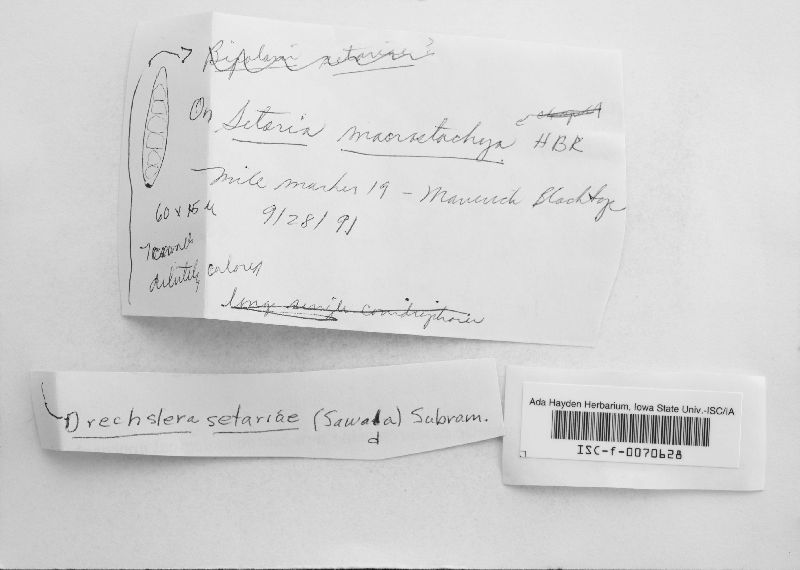 Bipolaris setariae?
On Setaria macrostachya HBK
mile marker 19 - Maverick Blacktop
9/28/91
60 x 15 µ
dilutely colored
long single conidiophores
Drechslera setariae (Sawada) Subram.
d
Ada Hayden Herbarium, Iowa State Univ.-ISC/IA
ISC-f-0070628